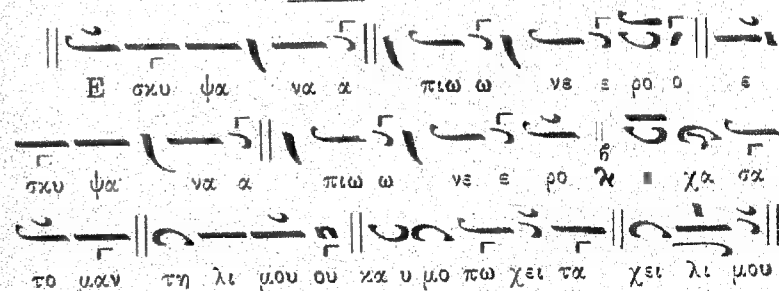 Ε σκυ ψα να α πιω ω νε ε ρο ο ε
σκυ ψα να α πιω ω νε ε ρο κ ι χα σα
το μαν τη λι μου ου κα υ μο πω χει τα χει λι μου